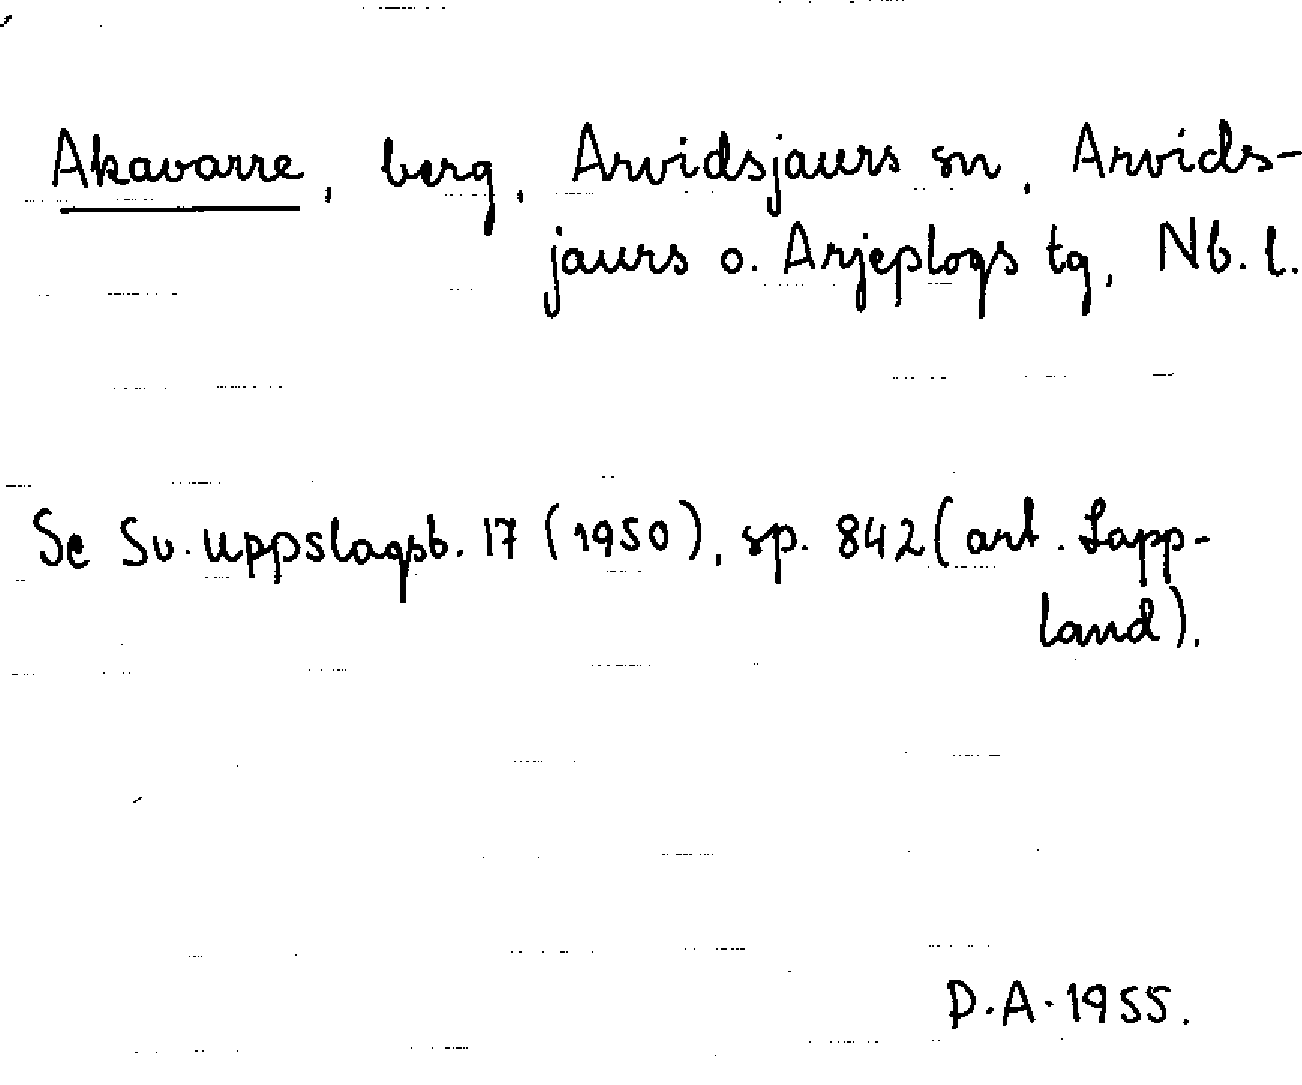 Akavarre, berg, Arvidsjaurs sn, Arvids-
jaurs o. Arjeplogs tg, Nb. l.
Se Sv. uppslagsb. 17 (1950), sp. 842 (art. Lapp-
land).
D.A. 1955.